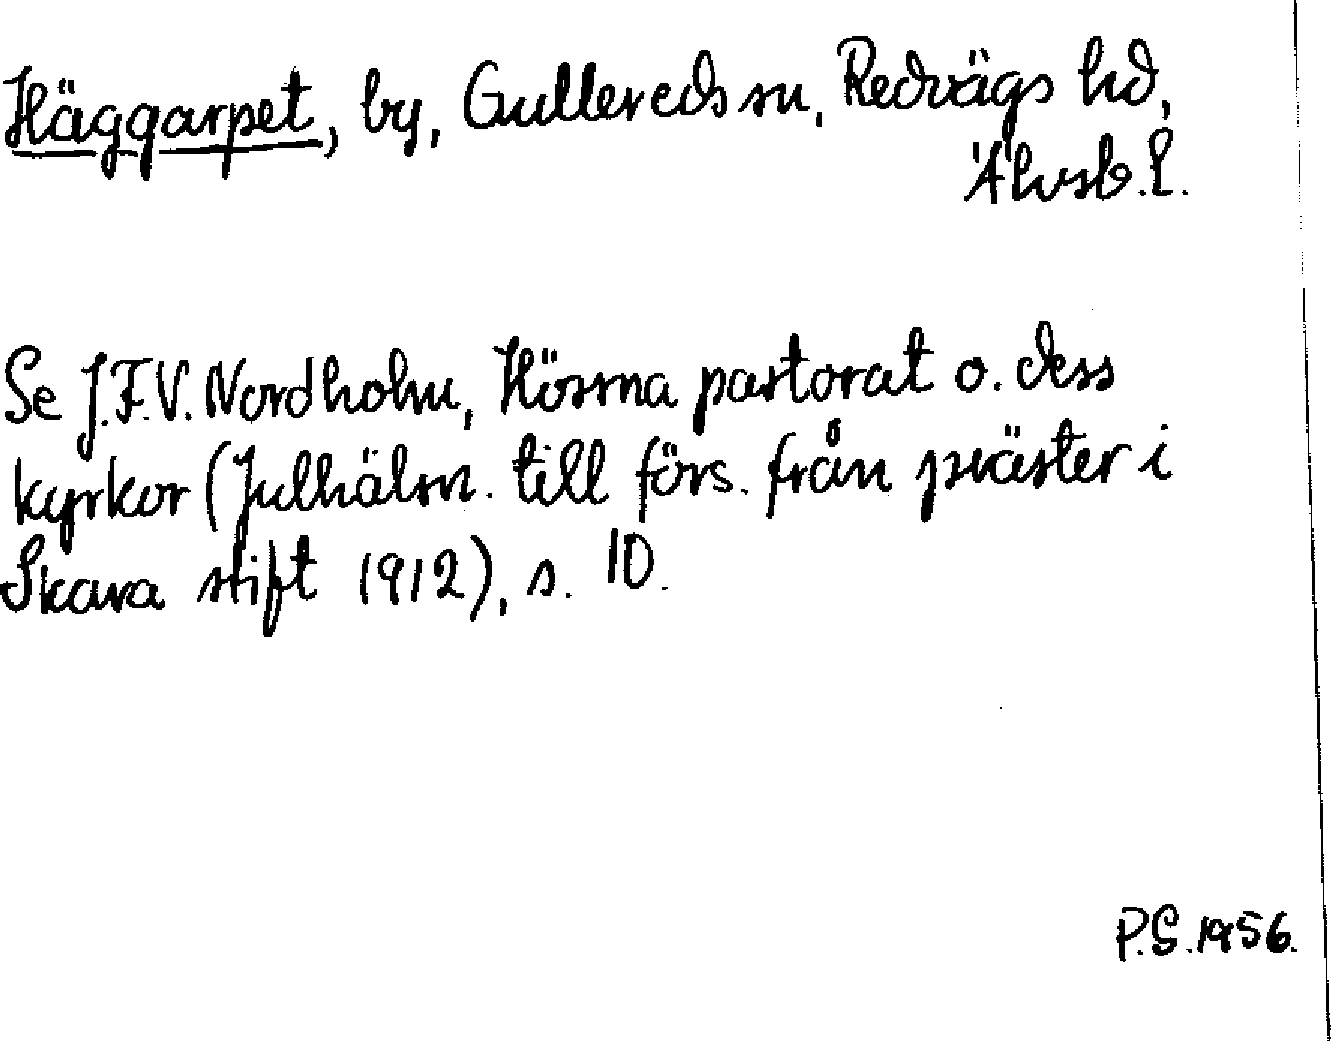 Häggarpet, by, Gullereds sn, Redvägs hd,
Älvsb. l.
Se J.F.V. Nordholm, Hössna pastorat o. dess
kyrkor (Julhälsn. till förs. från präster i
Skara stift 1912), s. 10.
P.G. 1956.